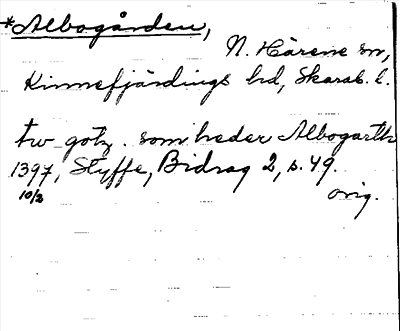 *Albogården,
N. Härene sn,
Kinnefjärdings hd, Skarab. l.
tw götz. som heder Albogarth
1397, Styffe, Bidrag 2, s. 49.
10/2 orig.